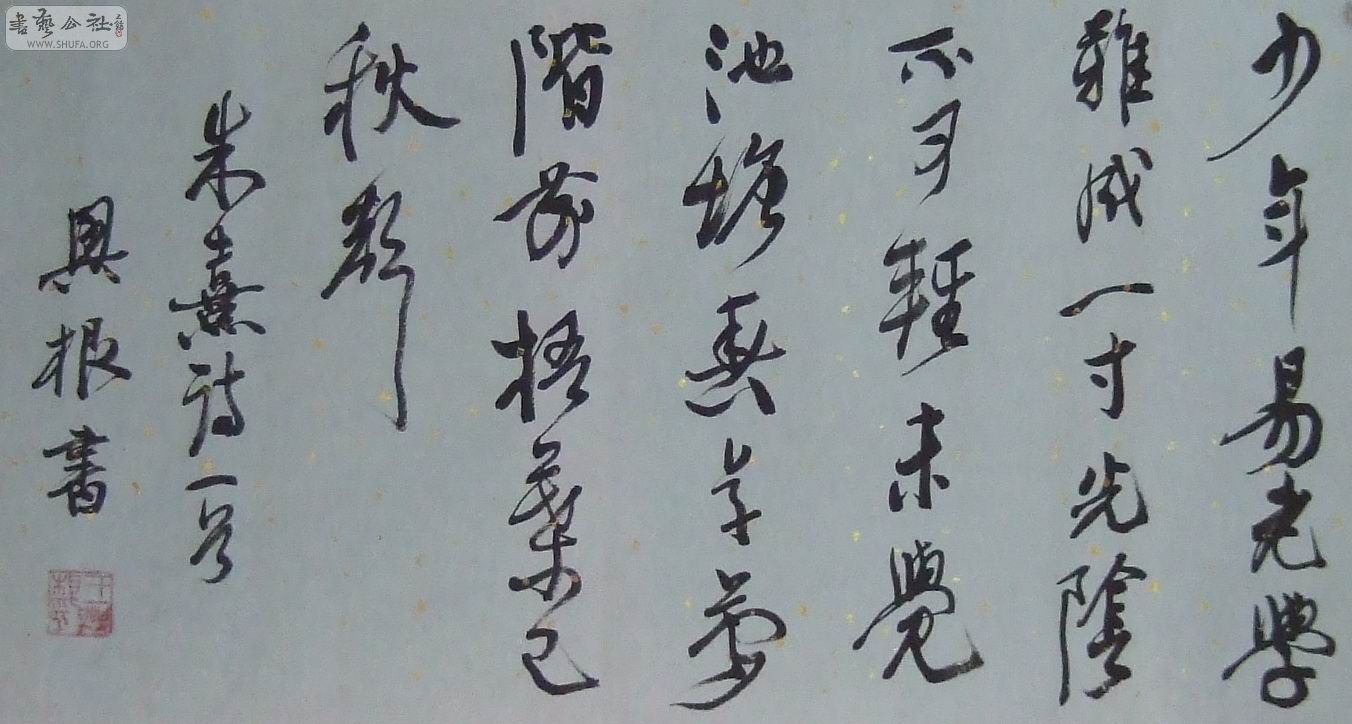 少年易老學
難成一寸光陰
不可輕未覺
池塘春草夢
階前梧葉已
秋聲
朱熹詩一首
興根書
書藝公社
WWW.SHUFA.ORG